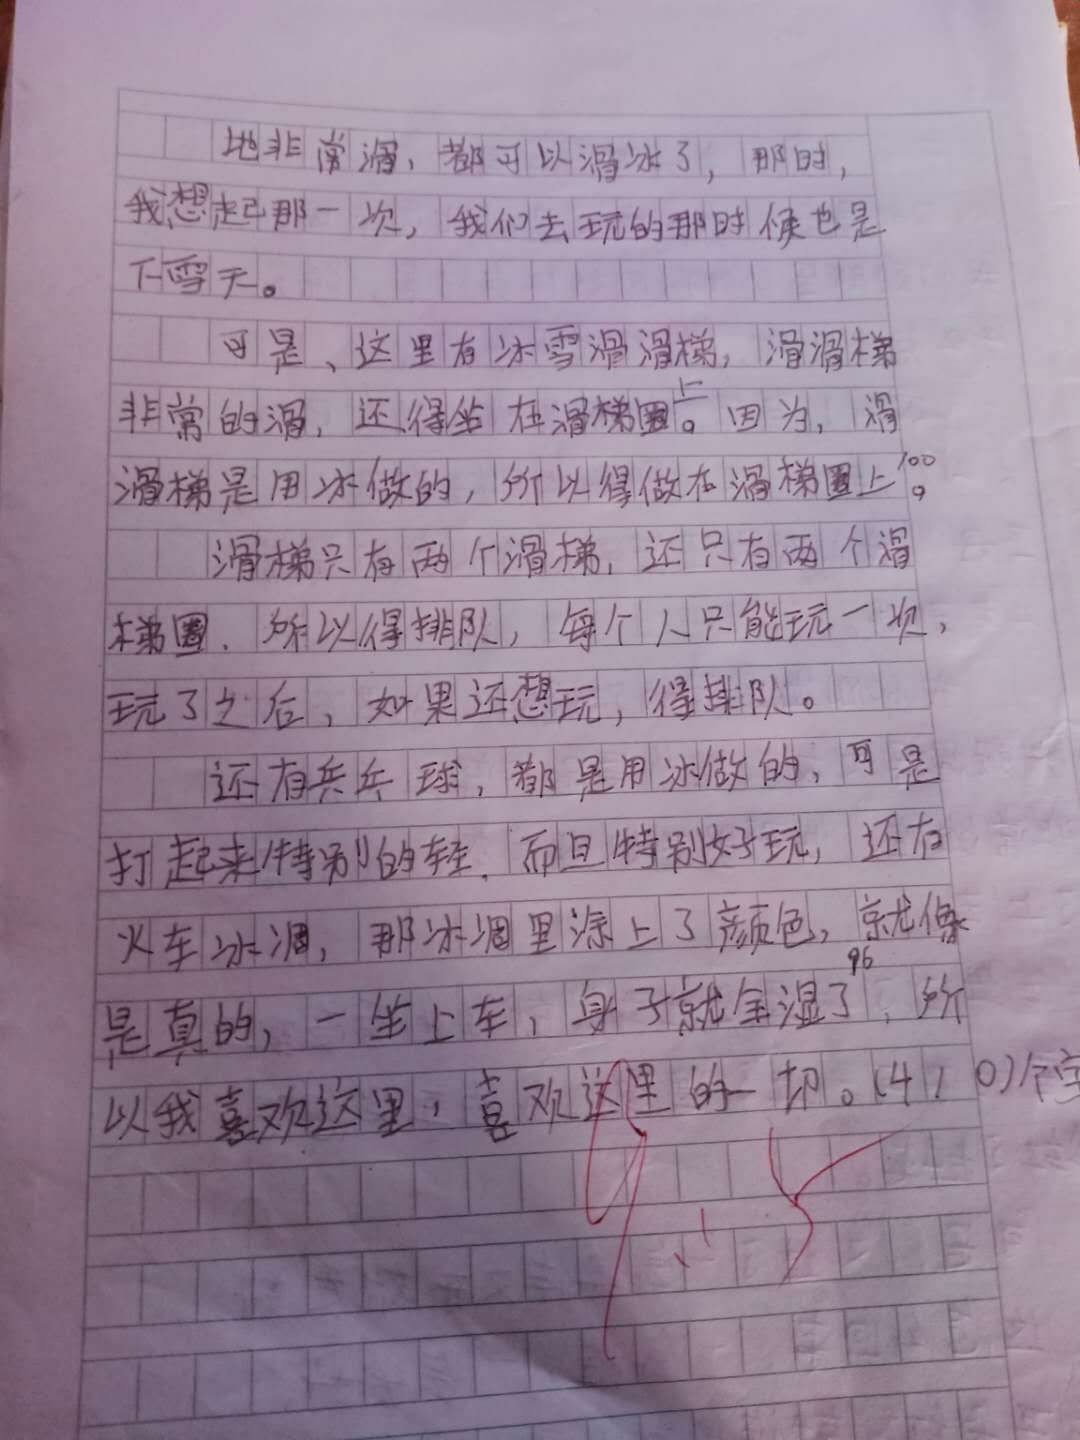 地非常滑，都可以滑冰了，那时，
我想起那一次，我们去玩的那时候也是
下雪天。
可是、这里有冰雪滑滑梯，滑滑梯
非常的滑，还得坐在滑梯圈上。因为，滑
滑梯是用冰做的，所以得做在滑梯圈上。
100
滑梯只有两个滑梯，还只有两个滑
梯圈．所以得排队，每个人只能玩一次，
玩了之后，如果还想玩，得排队。
还有兵乒球，都是用冰做的，可是
打起来特别的轻．而且特别好玩，还有
火车冰凋，那冰凋里涂上了颜色，就像
96
是真的，一坐上车，身子就全湿了，所
以我喜欢这里，喜欢这里的一切。(410)个字